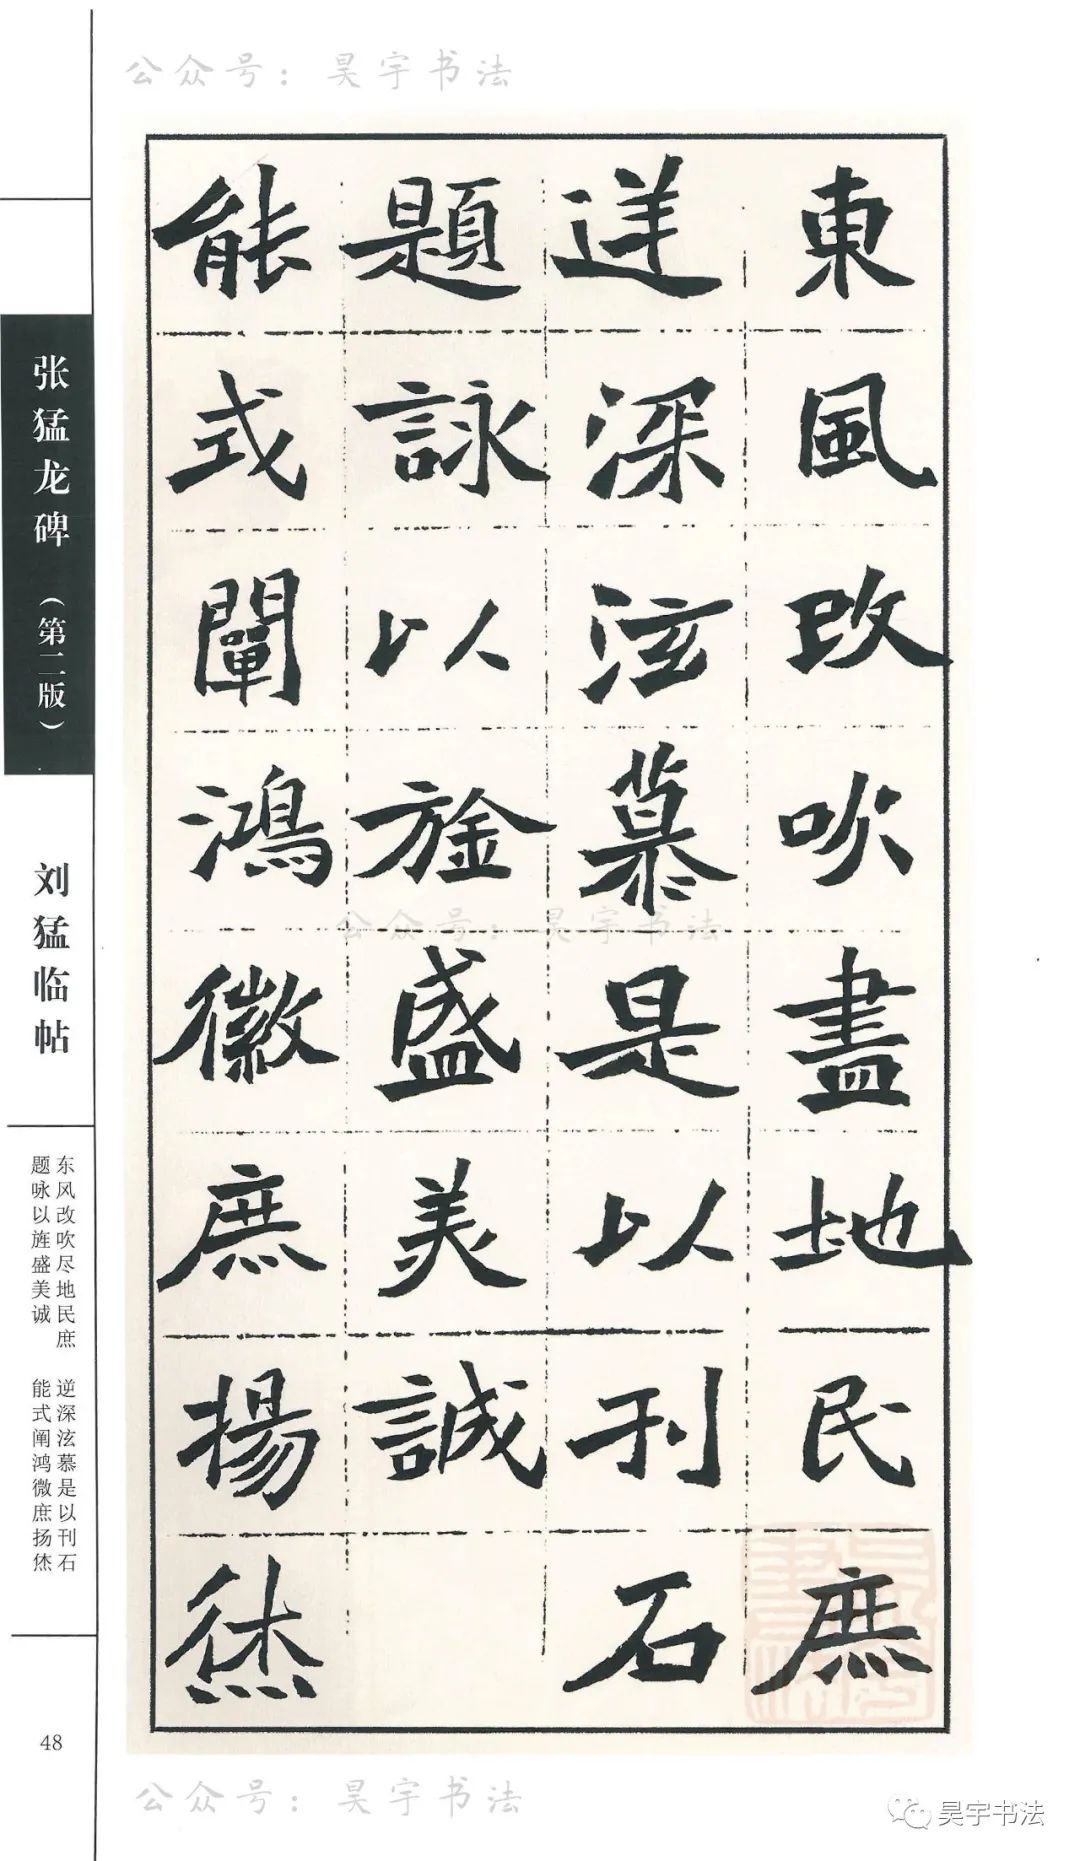 公众号：昊宇书法
東風改吹盡地民庶
逆深泫慕是以刊石
題詠以旌盛美誠
能式闡鴻徽庶揚烋
张猛龙碑（第二版）
刘猛临帖
东风改吹尽地民庶 逆深泫慕是以刊石
题咏以旌盛美诚 能式阐鸿微庶扬烋
48
公众号：昊宇书法
公众号：昊宇书法
昊宇书法